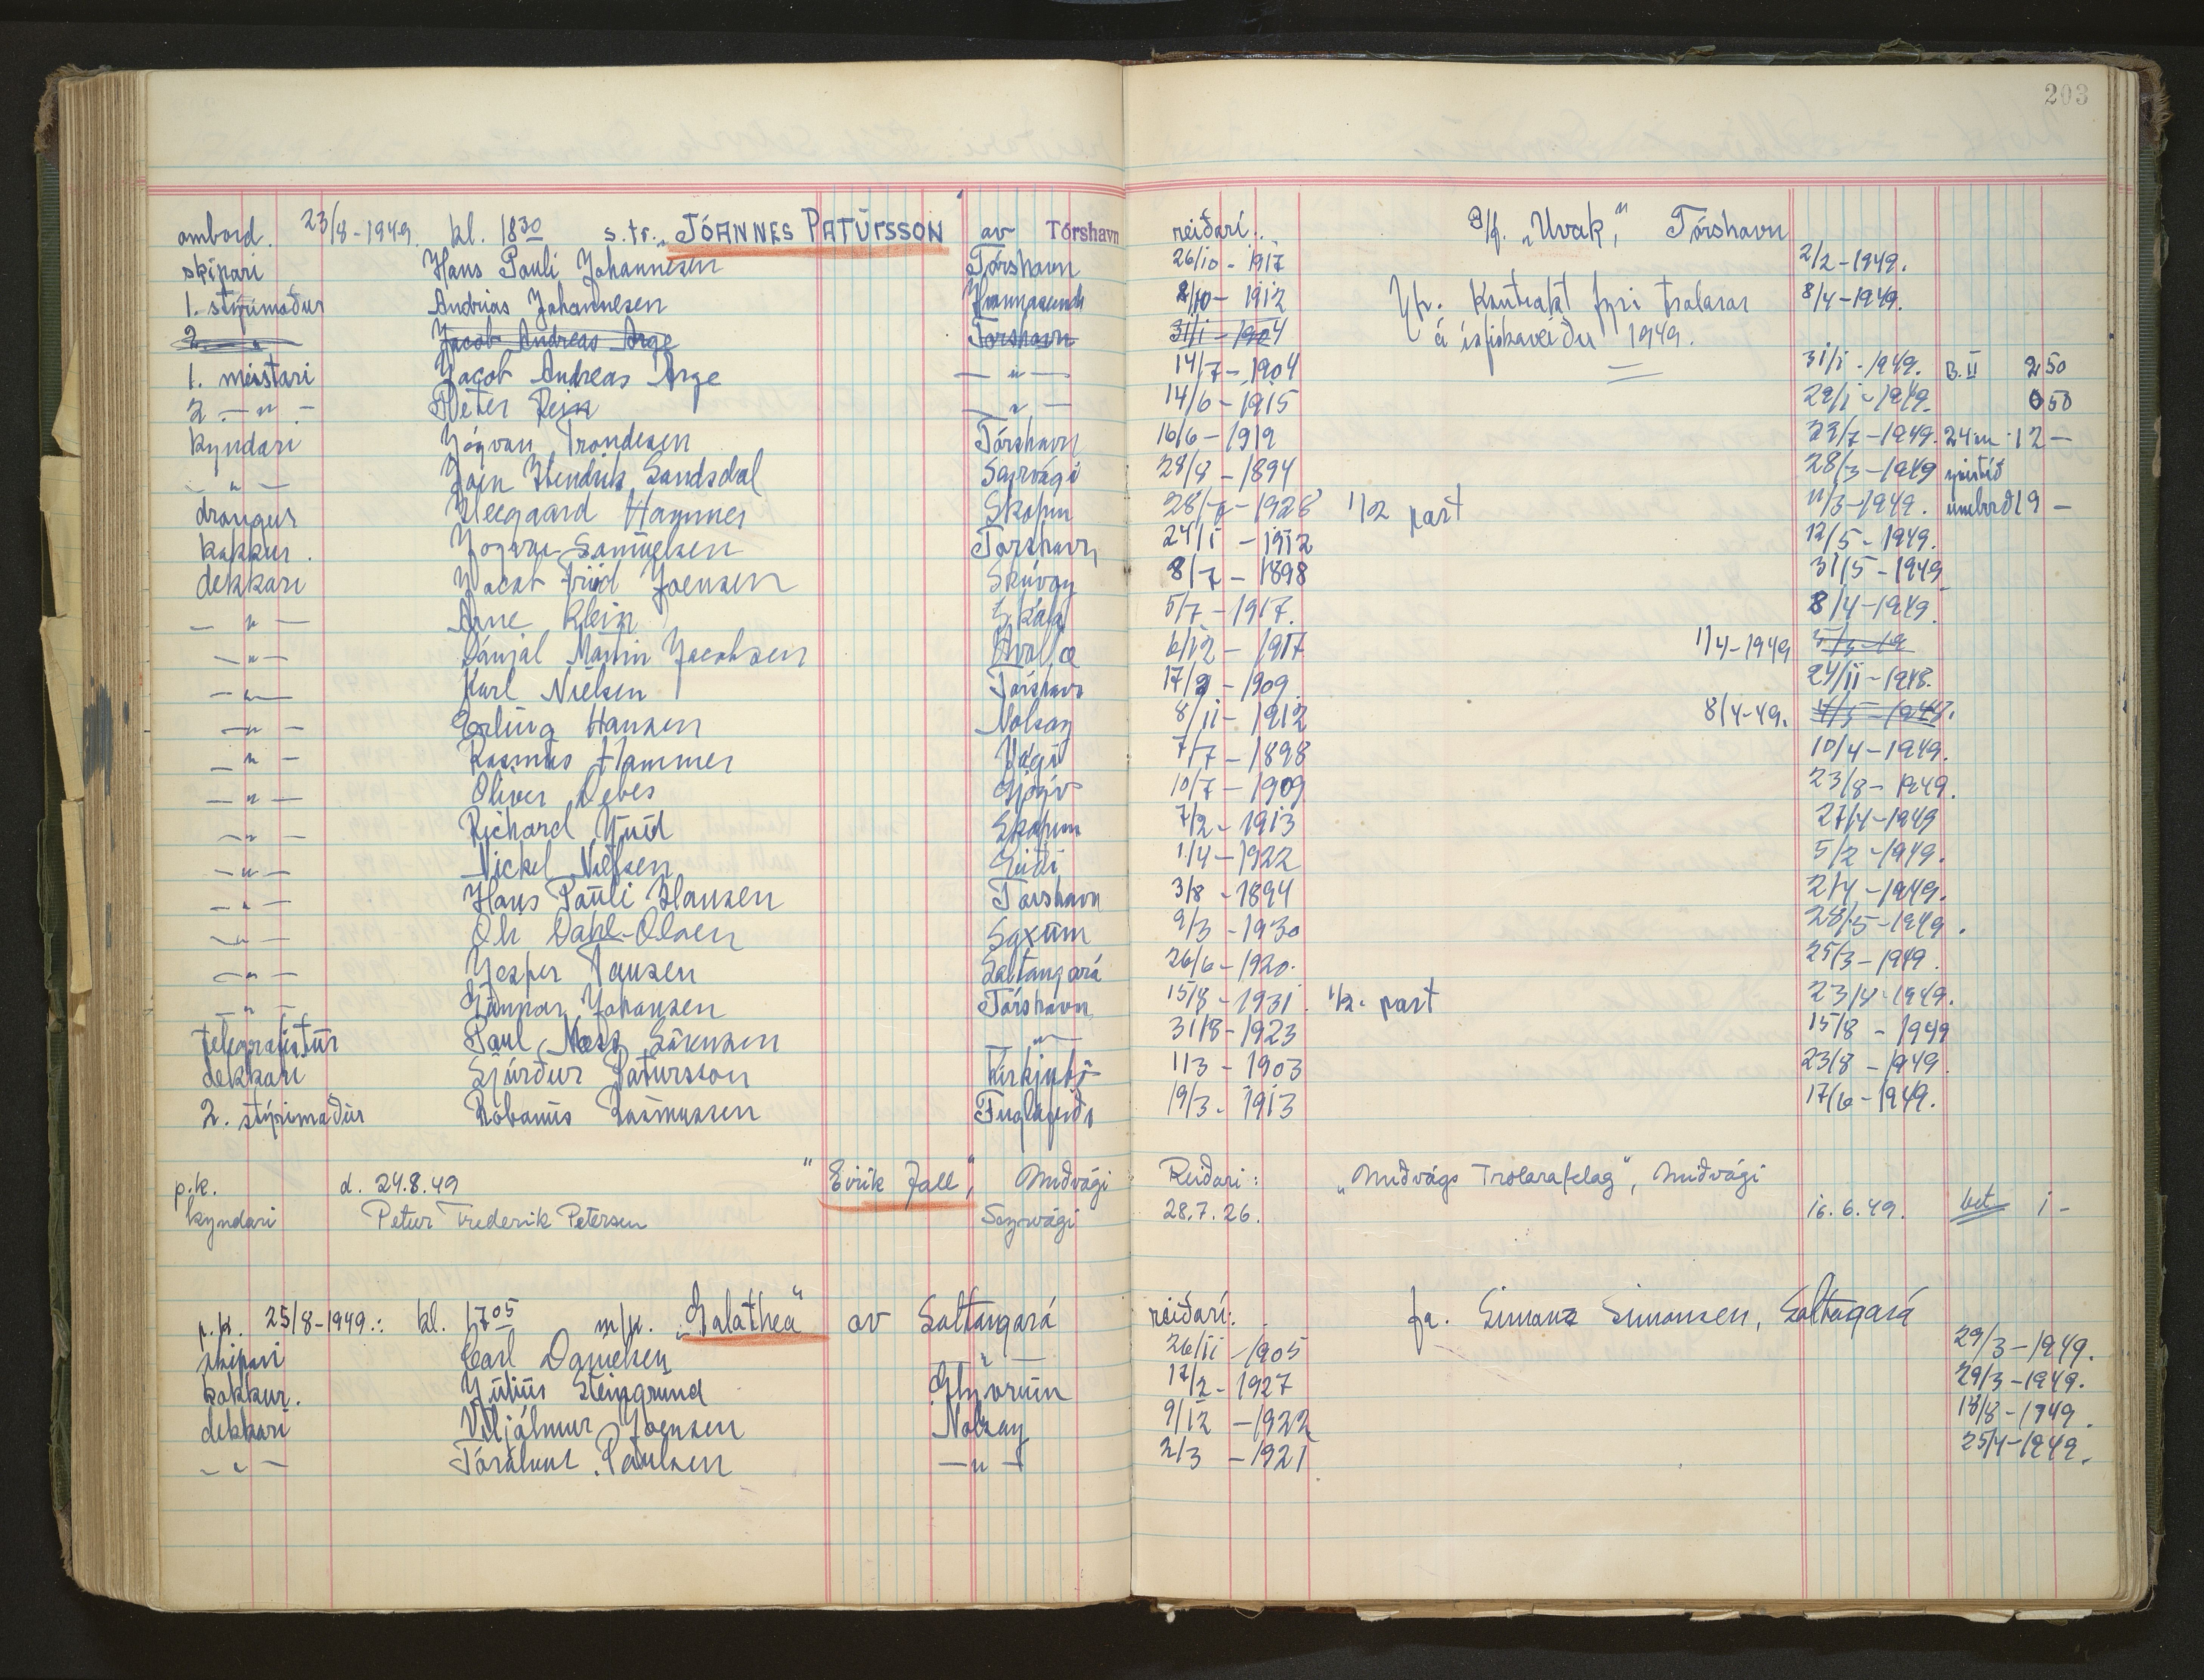 203
ambord. 23/8-1949. kl. 1830 s.tr. „JÓANNES PATURSSON av Tórshavn reiðari: P/f. „Uvak", Tórshavn
skipari Hans Pauli Johannesen Tórshavn 26/10-1917 2/2-1949.
1. stýrimaður Andrias Johannesen Hvannasund 2/10-1912 Yv. Kontrakt fyri trolarar 8/4-1949.
2. — " — Jacob Andreas Arge Tórshavn 31/1-1904 á ísfiskaveiðu 1949.
1. meistari Jacob Andreas Arge — " — 14/7-1904 31/1-1949. B.II 2 50
2. — " — Peter Rein — " — 14/6-1915 29/1-1949. 0 50
kyndari Jógvan Trondesen Tórshavn 16/6-1919 23/7-1949. 24 m 12 —
— " — Join Hendrik Sandsdal Sørvági 28/8-1894 28/3-1949
drongur Weegaard Hammer Skopun 28/7-1928 1/2 part 11/3-1949. umborð 19 —
kokkur. Jógvan Samuelsen Tórshavn 24/1-1912 12/5-1949.
dekkari Jacob Joensen Skúvoy 8/7-1898 31/5-1949
— " — Arne Klein Skála 5/7-1917. 8/4-1949.
— " — Dánjal Martin Jacobsen 6/12-1917 1/4-1949
— " — Karl Nielsen Tórshavn 17/2-1909. 24/11-1948.
— " — Erling Hansen Nolsoy 8/11-1912 8/4-49. 4/5-1948.
— " — Rasmus Hammer Vági 7/7-1898 10/4-1949.
— " — Oliver Debes Gjógv 10/7-1909 23/8-1949.
— " — Richard Yuid Skopun 7/2-1913 27/4-1949
— " — Nickel Nielsen Eiði 1/4-1922 5/2-1949.
— " — Hans Pauli Hansen Tórshavn 3/8-1894 2/4-1949.
— " — Oli Dahl-Olsen Saksun 9/3-1930 28/5-1949.
— " — Jesper Hansen Saltangará 26/6-1920. 25/3-1949.
— " — Gunnar Johansen Tórshavn 15/8-1931. 1/2. part 23/4-1949.
telegrafistur Paul Næss Sörensen — " — 31/8-1923 15/8-1949
dekkari Sjúrður Patursson Kirkjubö 11/3-1903 23/8-1949.
2. stýrimaður Robanus Rasmussen Fuglafirði 19/3-1913 17/6-1949.
p.k. d. 24.8.49 "Eirik Fall", Miðvági Reiðari: „Miðvágs Trolarafelag", Miðvági
kyndari Petur Frederik Petersen Sørvági 28.7.26. 16.6.49. bet 1 -
p.k. 25/8-1949.: kl. 1705 m/k. „Galathea" av Saltangará reiðari: fa. Simonz Simonsen, Saltagará
skipari Carl Danielsen — " — 26/11-1905 29/3-1949.
kokkur. Júlíus Steingrund Glyvrum 12/2-1927 29/3-1949.
dekkari Viljálmur Joensen Nolsoy 9/12-1922 18/8-1949.
— " — Tórálvur Paulsen — " — 2/3-1921 25/4-1949.